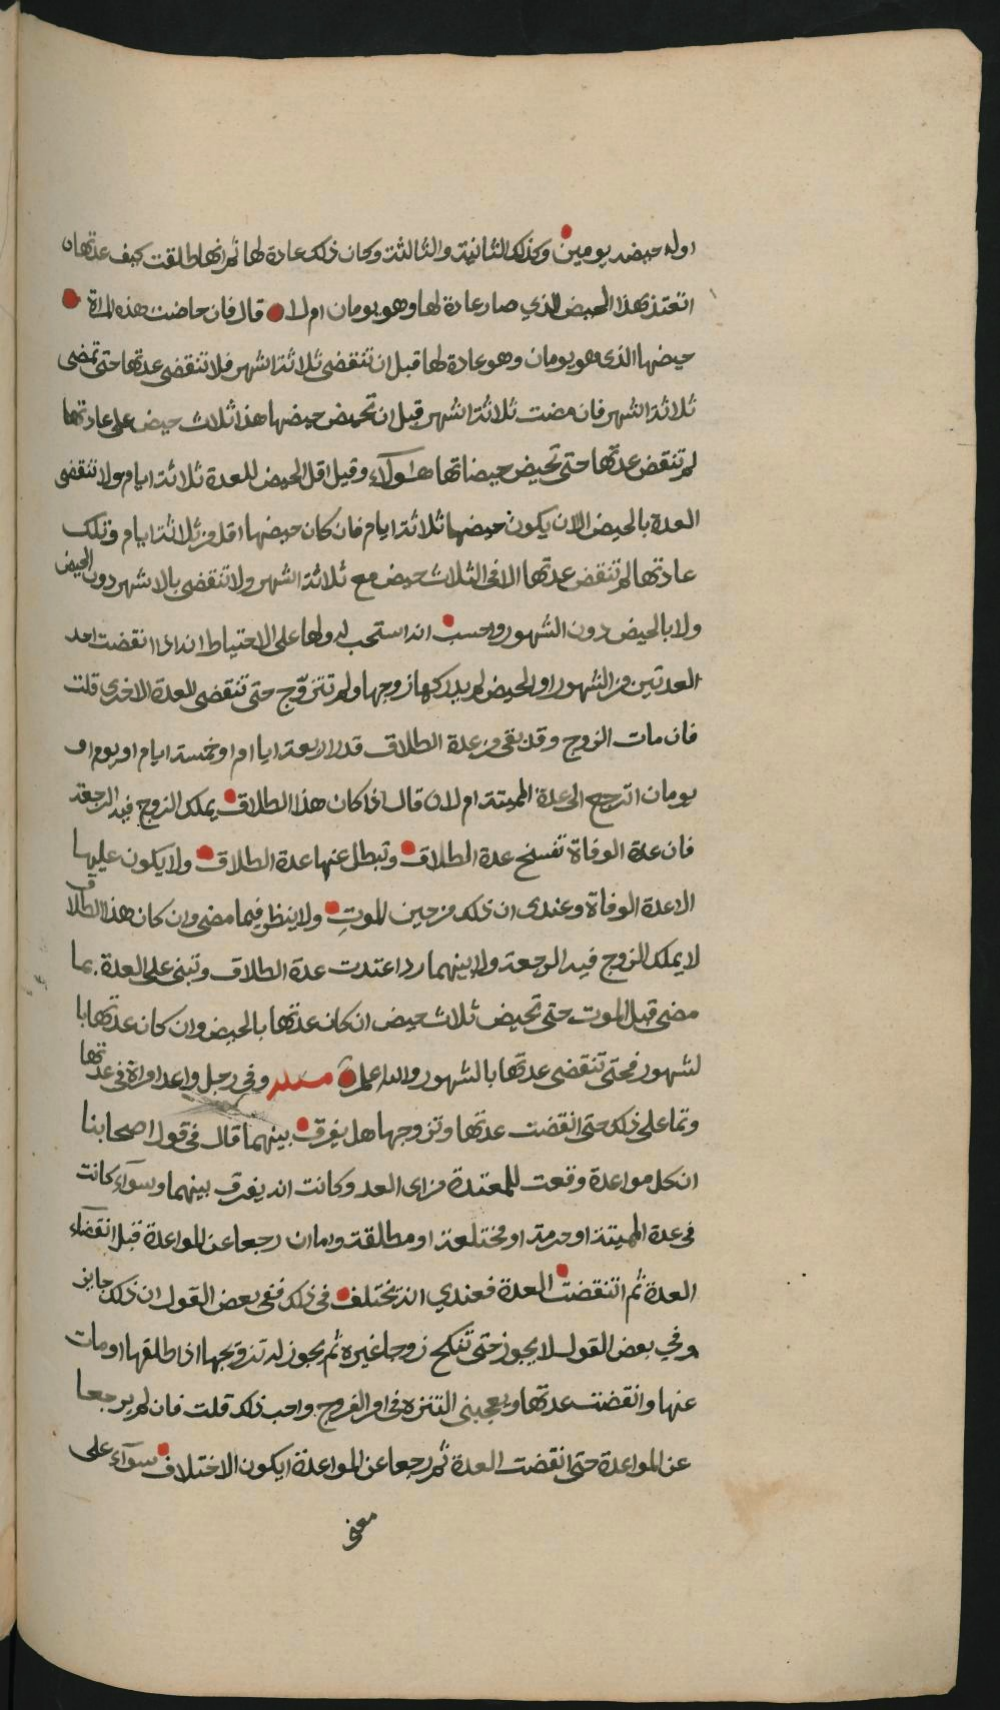 اوله حيضه يومين وكذلك الثانية والثالثة وكان ذلك عادة لها ثم انها طلقت كيف عدتها ن
اتعتد بهذا الحيض الذي صار عادة لها وهو يومان ام لا قال فان حاضت هذه المراة
حيضها الذي هو يومان وهو عادة لها قبل ان تنقضى ثلاثة اشهر فلا تنقضى عدتها حتى تمضى
ثلاثة اشهر فان مضت ثلاثة اشهر قبل ان تحيض حيضها هذا ثلاث حيض على عادتها
لم تنقض عدتها حتى تحيض حيضاتها هؤلآء وقيل اقل الحيض للعدة ثلاثة ايام ولا تنقضى
العدة بالحيض الا ان يكون حيضها ثلاثة ايام فان كان حيضها اقل من ثلاثة ايام وتلك
عادتها لم تنقض عدتها الا في الثلاث حيض مع ثلاثة اشهر ولا تنقضى بالاشهر دون الحيض
ولا بالحيض دون الشهور واحسب انه استحب له ولها على الاحتياط انه اذا انقضت احد
العدتين من الشهور او الحيض لم يدركها زوجها ولم تتزوّج حتى تنقضى العدة الاخرى قلت
فان مات الزوج وقد بقى من عدة الطلاق قدر اربعة ايا ام او خمسة ايام او يوم او
يومان اترجع الى عدة المميتة ام لا ن قال اذا كان هذا الطلاق يملك الزوج فيه الرجعة
فان عدة الوفاة تفسخ عدة الطلاق وتبطل عنها عدة الطلاق ولا يكون عليها
الا عدة الوفاة وعندى ان ذلك من حين الموتِ ولا ينظر فيما مضى وان كان هذا الطلاق
لا يملك الزوج فيه الرجعة ولا بينهما رد اعتدت عدة الطلاق وتبنى على العدة بما
مضى قبل الموت حتى تحيض ثلاث حيض ان كان عدتها بالحيض وان كان عدتها با
لشهور فحتى تنقضى عدتها بالشهور والله اعلم مسئلة وفي رجل واعد امراة في عدتها
وتما على ذلك حتى انقضت عدتها وتزوجها هل يفرق بينهما قال في قول اصحابنا
ان كل مواعدة وقعت للمعتدة من اى العدد كانت انه يفرق بينهما وسوآء كانت
في عدة المميتة او حرمة او مختلعة او مطالقة واما ان رجعا عن المواعدة قبل انقضآء
العدة ثم انقضت العدة فعندي انه يختلف في ذلك ففى بعض القول ان ذلك جايز
وفي بعض القول لا يجوز حتى تنكح زوجا غيره ثم يجوز له تزويجها اذا طلقها او مات
عنها وانقضت عدتها ويعجبنى التنزه في امر الفروج واحب ذلك قلت فان لم يرجعا
عن المواعدة حتى انقضت العدة ثم رجعا عن المواعدة ايكون الاختلاف سوآء على
معنى